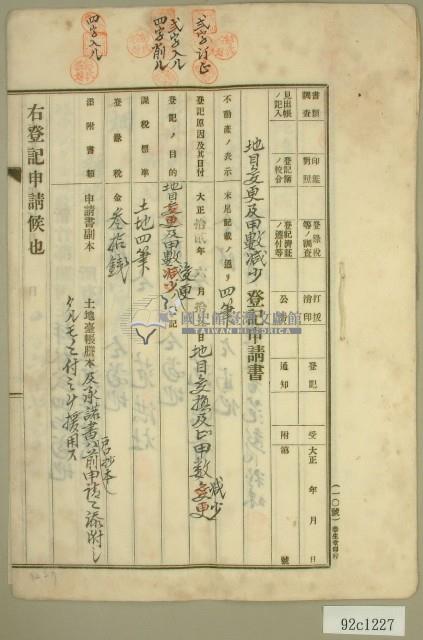 弐字訂正
弐字入ル
四字前ル
四字入ル
(一〇號)
受 大正 年 月 日
附 第 號
登記
通知
打援
檢印
公
登錄稅
等ノ調査
登記濟證
ノ還付等
印鑑
對照
登記簿
ノ校合
書類
調査
見出帳
ノ記入
地目変更及甲數減少登記申請書
不動產ノ表示 末尾記載ノ通リ 四筆
登記原因及其日付 大正拾弐年六月 日地目変換及ビ甲數変更
減少
登記ノ目的 地目変更及甲數減少 登記
変更
課稅標準 土地四筆
登錄稅 金参拾錢
添附書類 申請書副本 土地臺帳謄本及承諾書ハ前申請ニ添附シ
戸籍抄本
タルモノニ付之ヲ援用ス
右登記申請候也
日
國史館臺灣文獻館
TAIWAN HISTORICA
92c1227